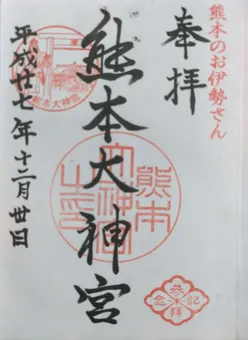 熊本のお伊勢さん
奉拝
熊本大神宮
平成廿七年十二月卅日
熊本大神宮
熊本
参拝
記念